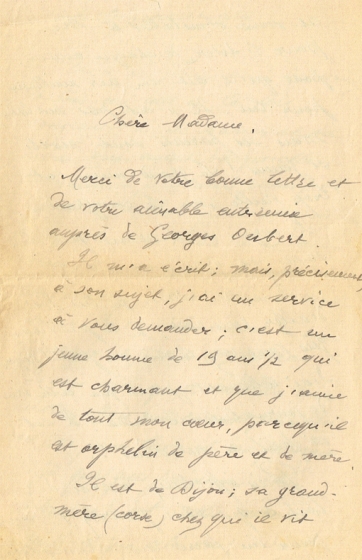 Chère Madame,
Merci de votre bonne lettre et
de votre aimable entremise
auprès de Georges Desbert.
Il m'a écrit ; mais, précisément
à son sujet, j'ai un service
à vous demander ; c'est un
jeune homme de 19 ans 1/2 qui
est charmant et que j'aime
de tout mon cœur, parcequ'il
est orphelin de père et de mère.
Il est de Dijon ; sa grand-
mère (corse) chez qui il vit